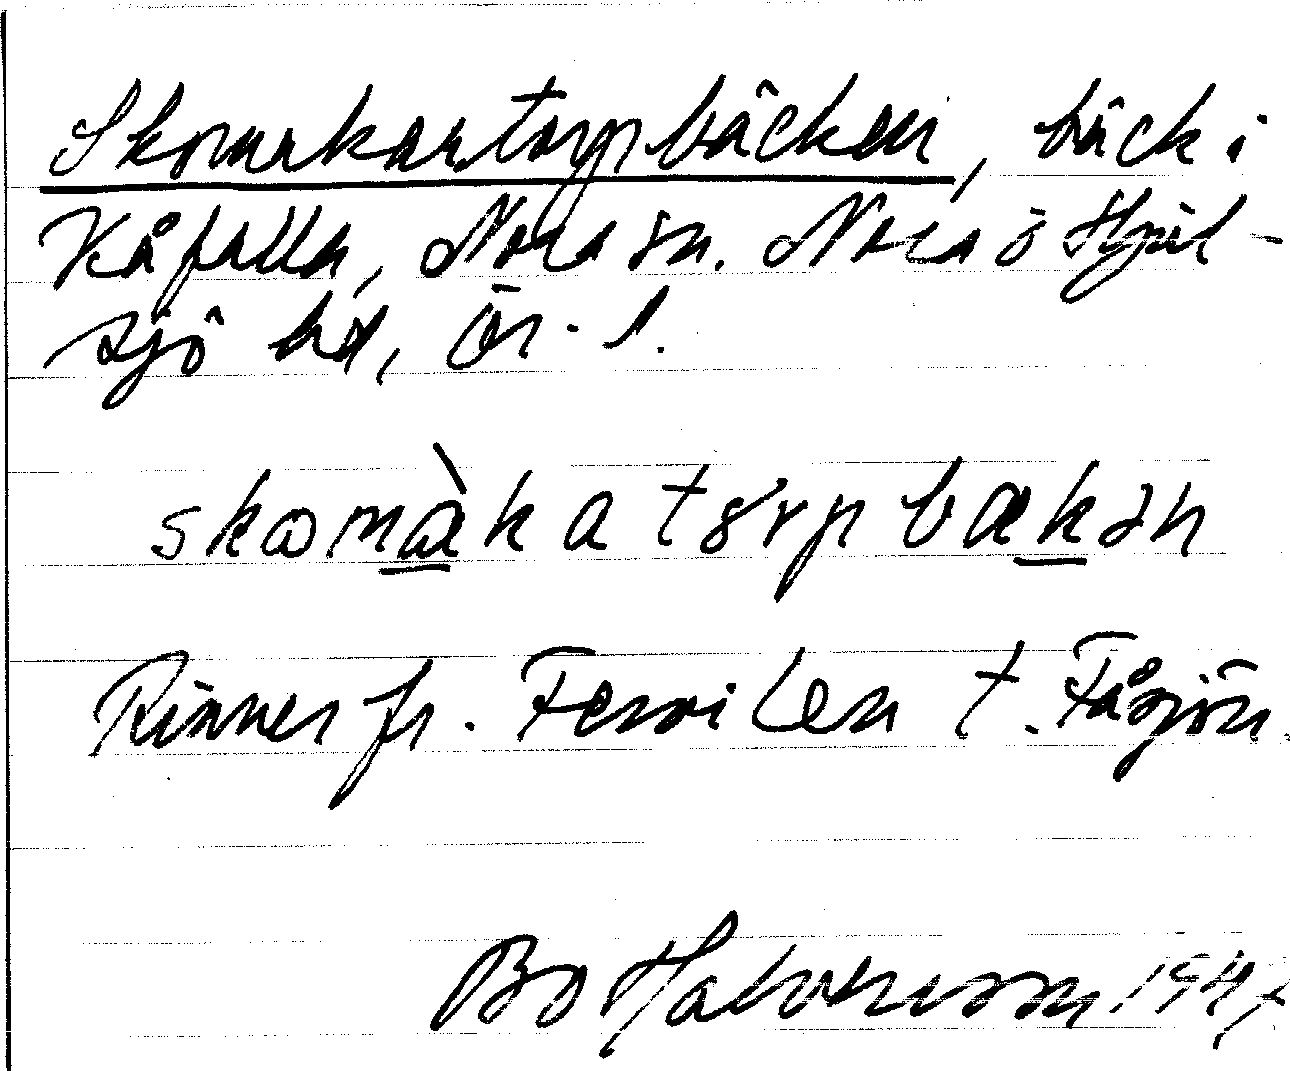 Skomakartorpbäcken, bäck i
Kåfalla, Nora sn. Nora o Hjul-
sjö hd, Ör. l.
skomàkatɵrpbækən
Rinner fr. t. Fåsjön.
Bo Halvarsson 194